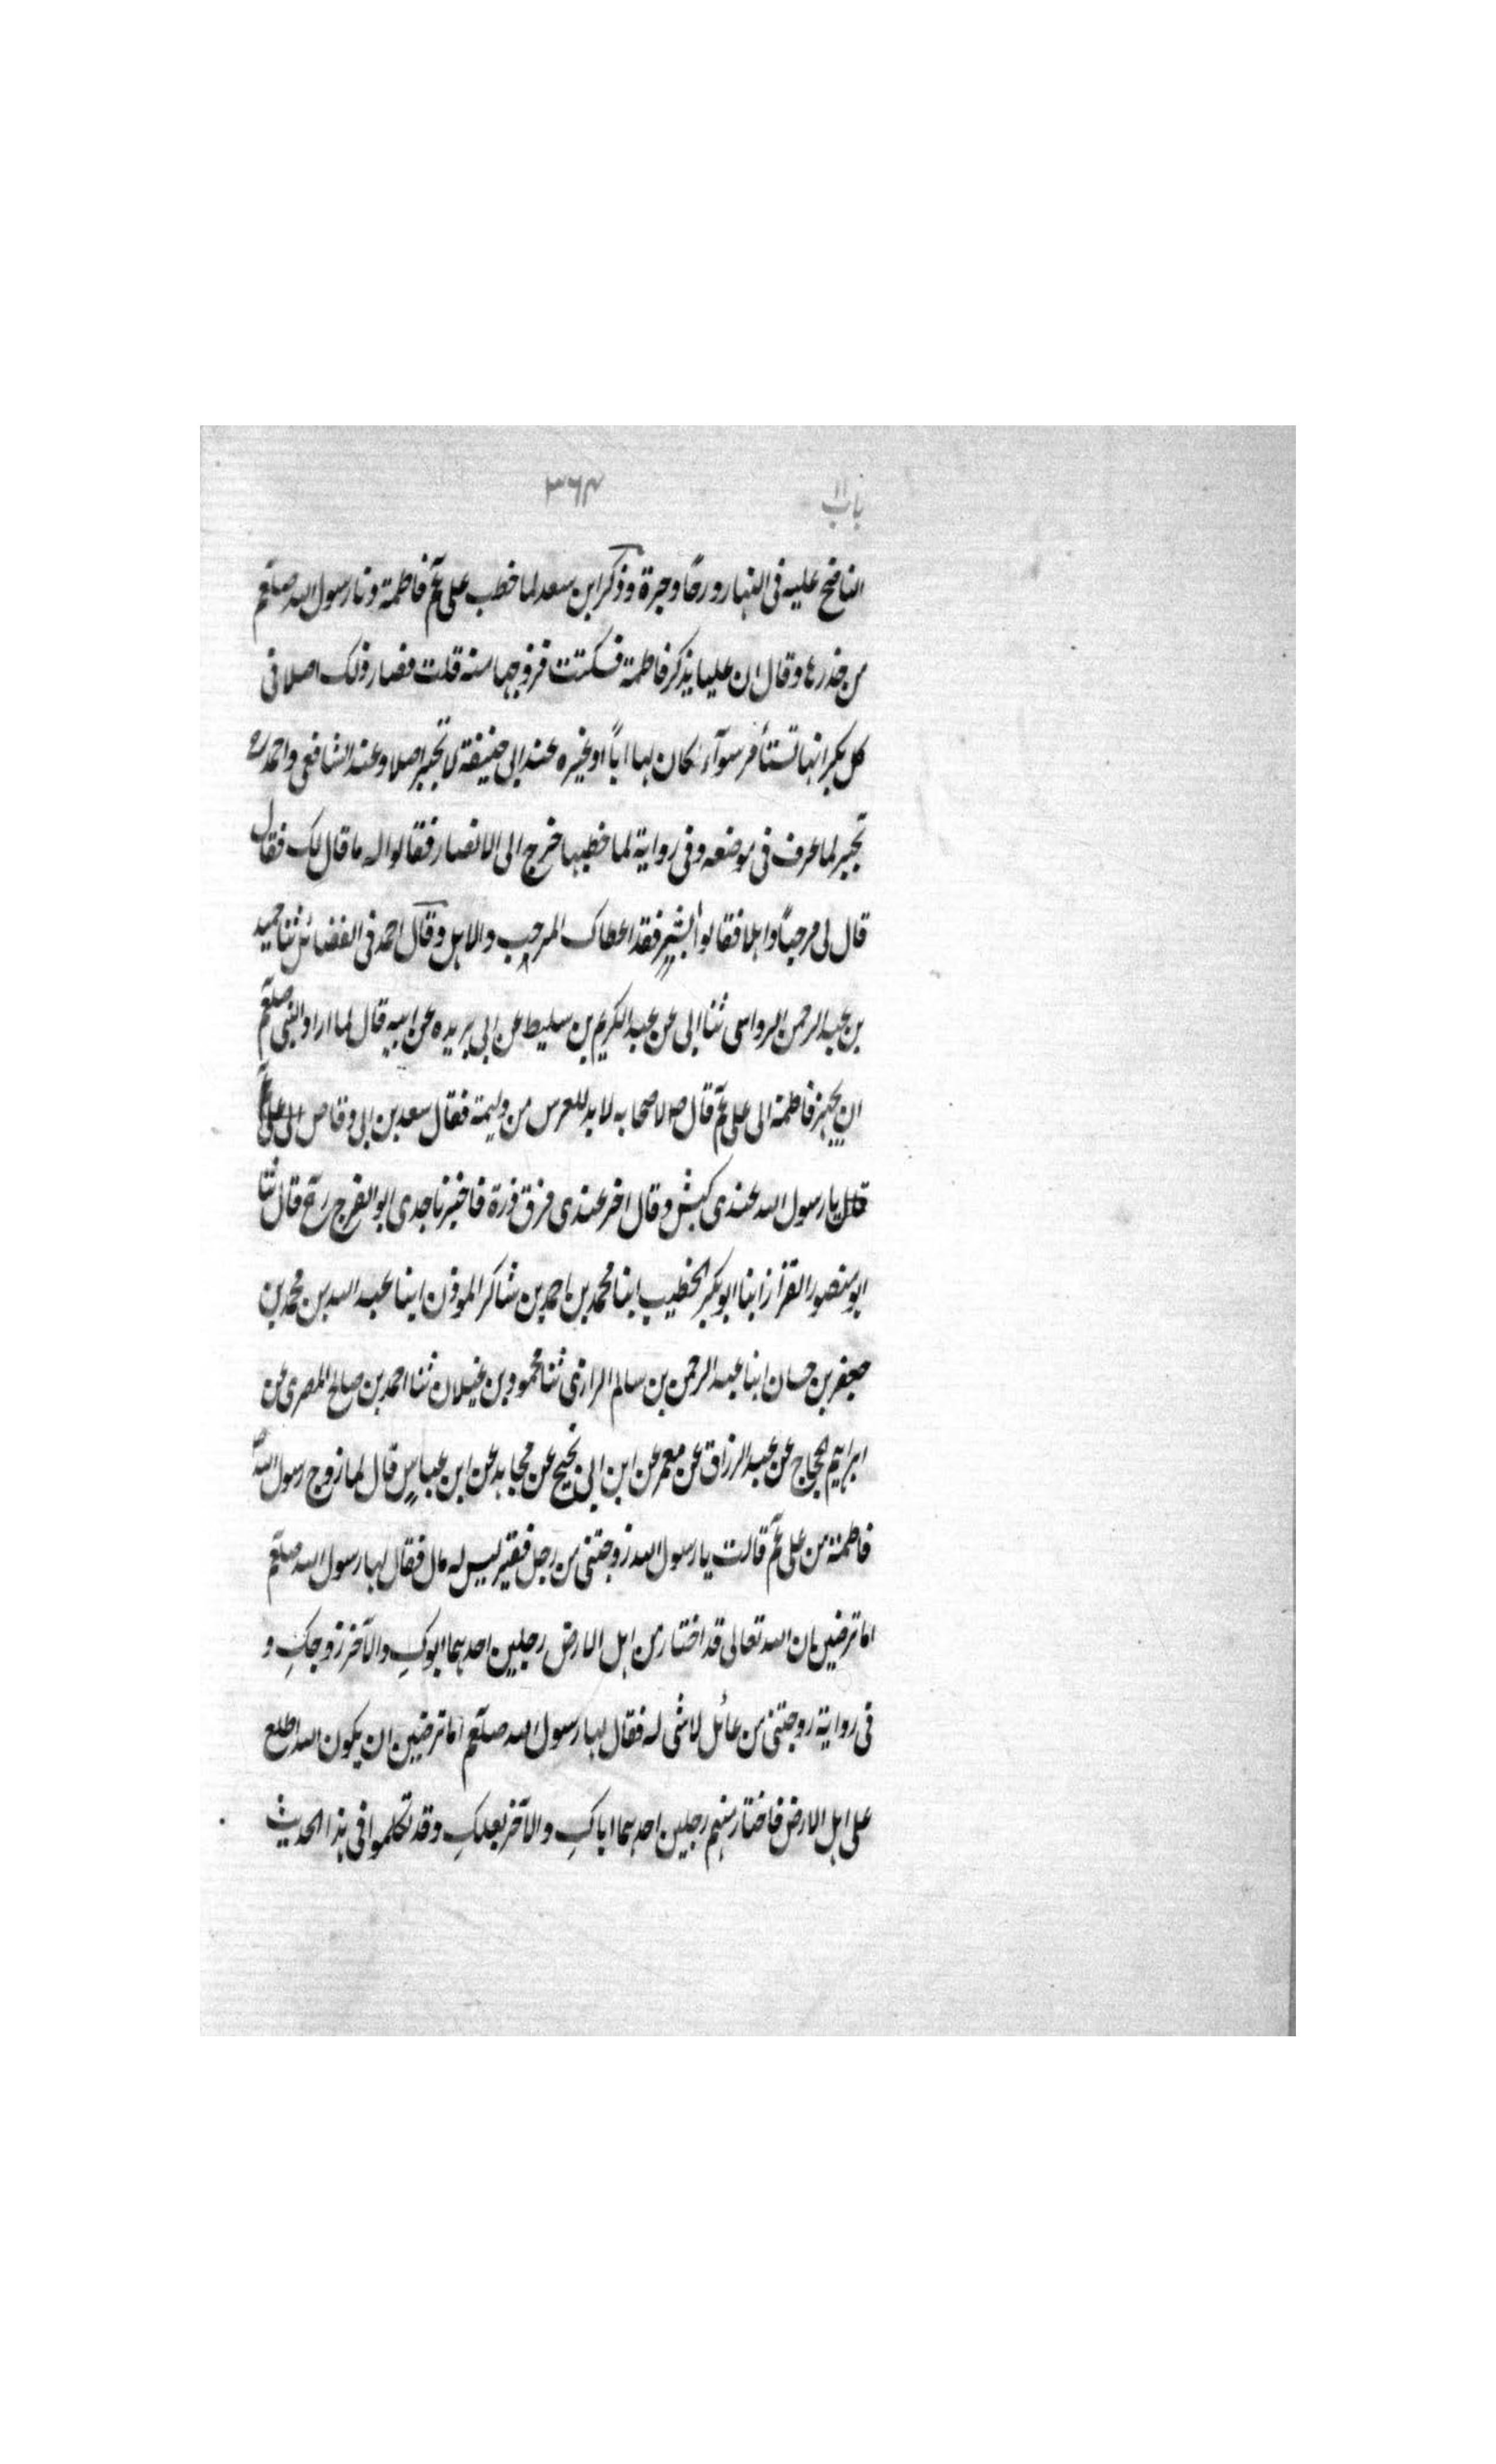 باب ١١ ٣٦٤
الناضح عليه فى النهار ورحًا وجرة وذكر ابن سعد لما خطب على عم فاطمة دنا رسول الله صلعم
من خدرها وقال ان عليا يذكر فاطمة فسكتت فزوجها منه قلت فصار ذلك اصلا فى
كل بكر انها تستأمر سوآء كان لها اباً او غيره عند ابى حنيفة لا تجبر اصلا وعند الشافعى واحمد ره
تجبر لما عرف فى موضعه وفى رواية لما خطبها خرج الى الانصار فقالوا له ما قال لك فقال
قال لى مرحباً واهلا فقالوا أبشر فقد اعطاك المرحب والاهل وقال احمد فى الفضائل ثنا حميد
بن عبد الرحمن الرواسى ثنا ابى عن عبد الكريم بن سليط عن ابى بريده عن ابيه قال لما اراد النبى صلعم
ان يجهز فاطمة الى على عم قال ص لاصحابه لا بد للعرس من وليمة فقال سعد بن ابى وقاص الى على
قلل يا رسول الله عندى كبش وقال اخر عندى فرق ذرة فاخبرنا جدى ابو الفرج رح قال ثنا
ابو منصور القزاز ابنا ابو بكر الخطيب ابنا محمد بن احمد بن شاكر الموذن ابنا عبد الله بن محمد بن
جعفر بن حسان ابنا عبد الرحمن بن سالم الرازى ثنا محمود بن غيلان ثنا احمد بن صالح المصرى عن
ابراهيم الحجاج عن عبد الرزاق عن معمر عن ابن ابى نجيح عن مجاهد عن ابن عباس قال لما زوج رسول الله ص
فاطمة من على عم قالت يا رسول الله زوجتنى من رجل فقير ليس له مال فقال لها رسول الله صلعم
اما ترضين ان الله تعالى قد اختار من اهل الارض رجلين احدهما ابوكِ والآخر زوجكِ و
فى رواية زوجتنى من عائل لا شى له فقال لها رسول الله صلعم اما ترضين ان يكون الله اطلع
على اهل الارض فاختار منهم رجلين احدهما اباكِ والآخر بعلكِ وقد تكلموا فى هذا الحديث